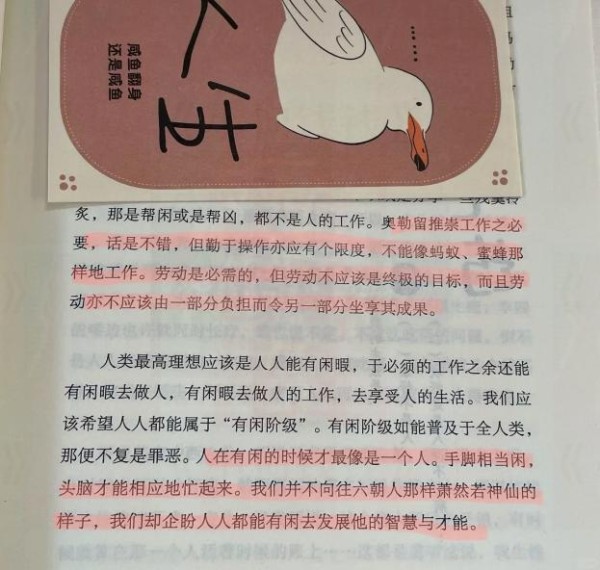 人生
咸鱼翻身
还是咸鱼
……
炙，那是帮闲或是帮凶，都不是人的工作。奥勒留推崇工作之必
要，话是不错，但勤于操作亦应有个限度，不能像蚂蚁、蜜蜂那
样地工作。劳动是必需的，但劳动不应该是终极的目标，而且劳
动亦不应该由一部分负担而令另一部分坐享其成果。
人类最高理想应该是人人能有闲暇，于必须的工作之余还能
有闲暇去做人，有闲暇去做人的工作，去享受人的生活。我们应
该希望人人都能属于“有闲阶级”。有闲阶级如能普及于全人类，
那便不复是罪恶。人在有闲的时候才最像是一个人。手脚相当闲，
头脑才能相应地忙起来。我们并不向往六朝人那样萧然若神仙的
样子，我们却企盼人人都能有闲去发展他的智慧与才能。